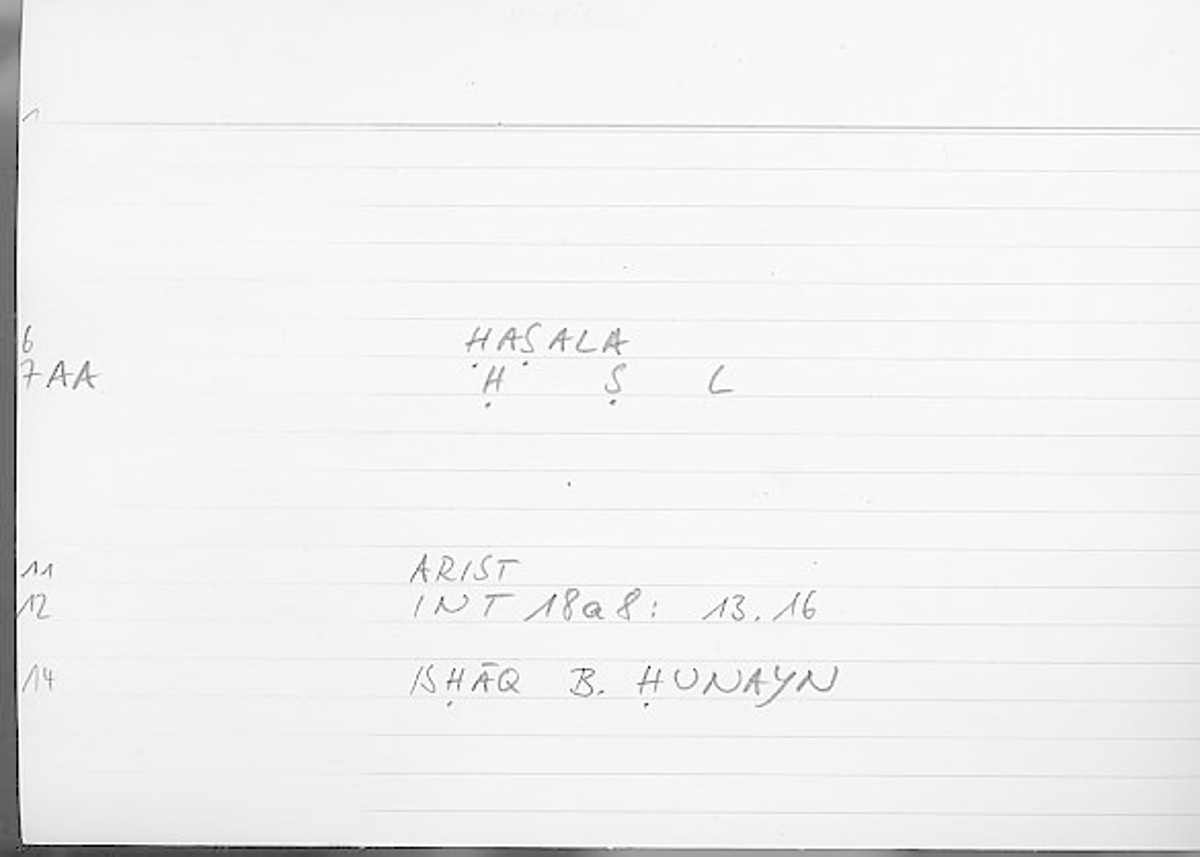 1
6 ḤAṢALA
7AA Ḥ Ṣ L
11 ARIST
12 INT 18a8: 13.16
14 ISḤĀQ B. ḤUNAYN